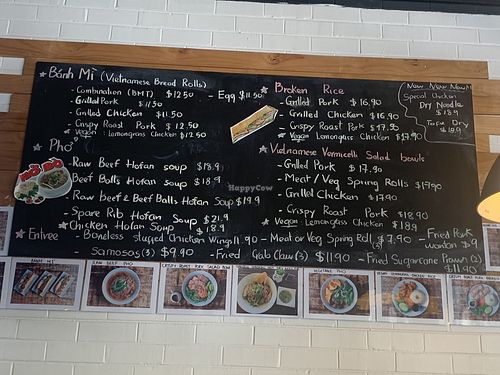 Bánh Mì (Vietnamese Bread Rolls)
- Combination (BMT) $12.50
- Egg $11.50
- Grilled Pork $11.50
- Grilled Chicken $11.50
- Crispy Roast Pork $12.50
Vegan: Lemongrass Chicken $12.50
Phở
- Raw Beef Hofan soup $18.9
- Beef Balls Hofan soup $18.9
- Raw beef & Beef Balls Hofan Soup $19.9
- Spare Rib Hofan Soup $21.9
Chicken Hofan Soup $18.9
Broken Rice
- Grilled Pork $16.90
- Grilled Chicken $16.90
- Crispy Roast Pork $17.90
Vegan Lemongrass Chicken $17.90
Vietnamese Vermicelli Salad bowls
- Grilled Pork $17.90
- Meat/Veg Spring Rolls $17.90
- Grilled Chicken $17.90
- Crispy Roast Pork $18.90
Vegan: Lemongrass Chicken $18.9
New New New!!
Special Chicken
Dry Noodle
$18.9
Tofu Dry
$18.9
Entree
- Boneless stuffed Chicken Wings 11.90
- Meat or Veg Spring Roll $7.90
(3)
- Fried Pork
wonton $9
- Samosos (3) $9.90
- Fried Crab Claw (3) $11.90
- Fried Sugarcane Prawn (2)
$11.90
HappyCow
BANH MI
RAW BEEF PHO
CRISPY ROAST PORK SALAD BOWL
VEGETABLE PHO